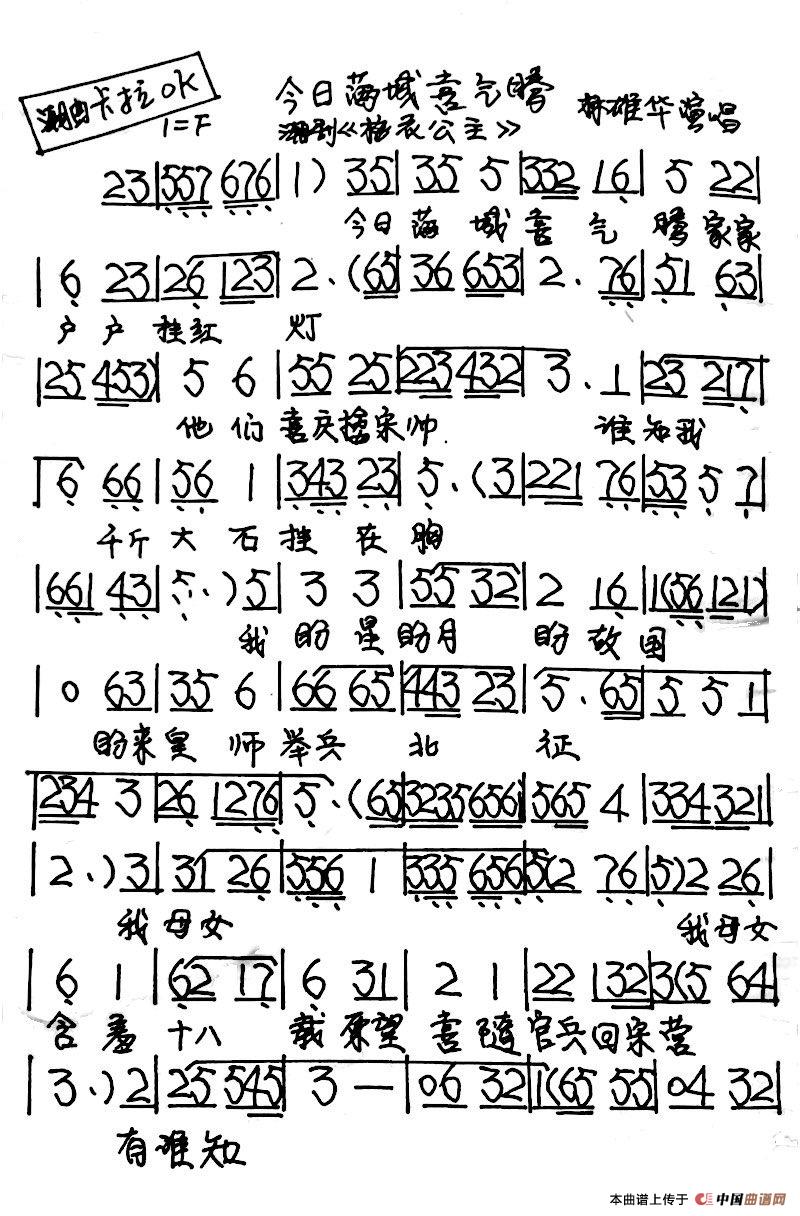 潮曲卡拉OK
今日满城喜气腾
1=F
潮剧《梅花公主》 林雄华演唱
23|557 676|1) 35|35 5|332 16|5 22|
今日满城喜气腾家家
|6 23|26 123|2.(65|36 653|2. 76|51 63|
户户挂红灯
|25 453)|5 6|55 25|223 432|3. 1|23 217|
他们喜庆擒宋帅 谁知我
6 66|56 1|343 23|5.(3|221 76|53 5 7|
千斤大石挂在胸
|661 43|5.)5|3 3|55 32|2 16|1(56 121)|
我盼星盼月盼故国
|0 63|35 6|66 65|443 23|5. 65|5 5 1|
盼来皇师举兵北征
|234 3|26 1276|5.(65|3235 6561|565 4|334 321|
|2.)3|31 26|556 1|335 656|5(2 76|5)2 26|
我母女 我母女
|6 1|62 17|6 31|2 1|22 132|3(5 64|
含羞十八载愿望喜随官兵回宋营
|3.)2|25 545|3 —|06 32|1(65 55|04 32|
有谁知
本曲谱上传于 中国曲谱网